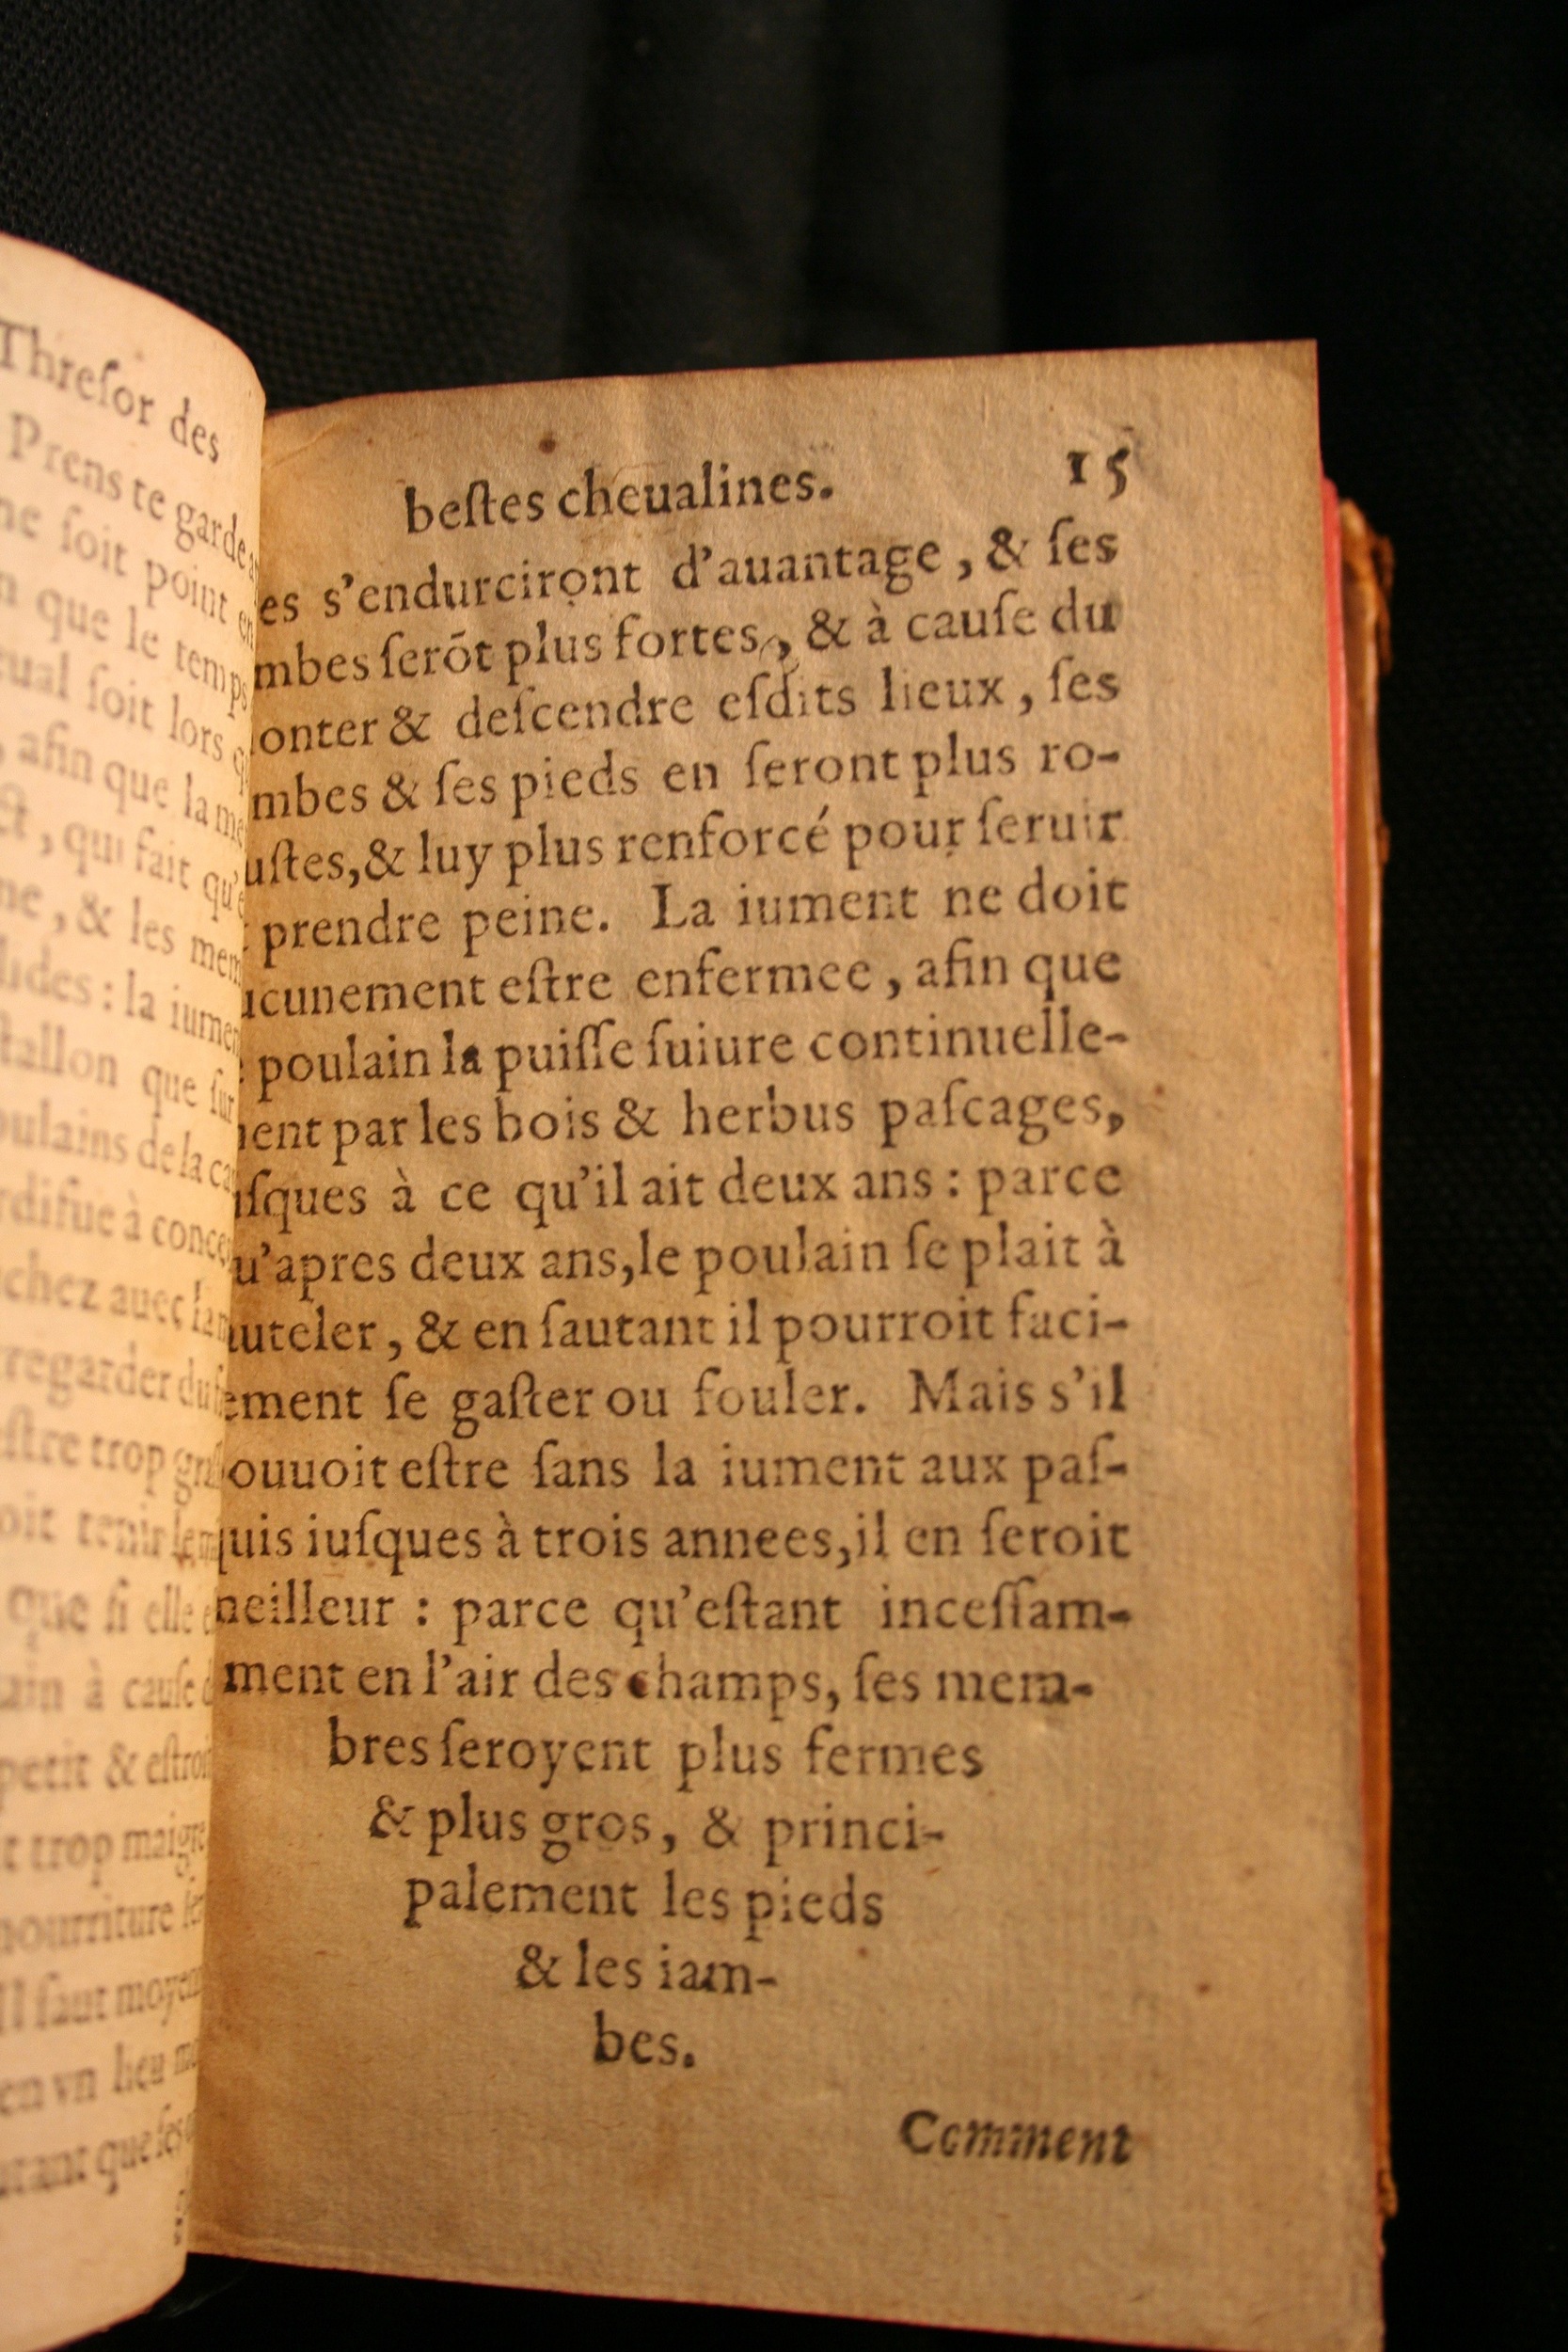 Thresor des
Prens te garde
ne soit point
que le temps
soit lors
afin que la
qui fait
& les
la
que
à
auec
regarder
estre trop
tenir
que si elle
à cause
petit &
trop maigre
nourriture
Il faut
en vn lieu
que ses
bestes cheualines. 15
es s'endurciront d'auantage, & ses
mbes serõt plus fortes, & à cause du
onter & descendre esdits lieux, ses
mbes & ses pieds en seront plus ro-
ustes, & luy plus renforcé pour seruir
prendre peine. La iument ne doit
ucunement estre enfermee, afin que
poulain la puisse suiure continuelle-
ent par les bois & herbus pascages,
sques à ce qu'il ait deux ans : parce
u'apres deux ans, le poulain se plait à
uteler, & en sautant il pourroit faci-
ement se gaster ou fouler. Mais s'il
ouuoit estre sans la iument aux pas-
quis iusques à trois annees, il en seroit
neilleur : parce qu'estant incessam-
ment en l'air des champs, ses mem-
bres seroyent plus fermes
& plus gros, & princi-
palement les pieds
& les iam-
bes.
Comment